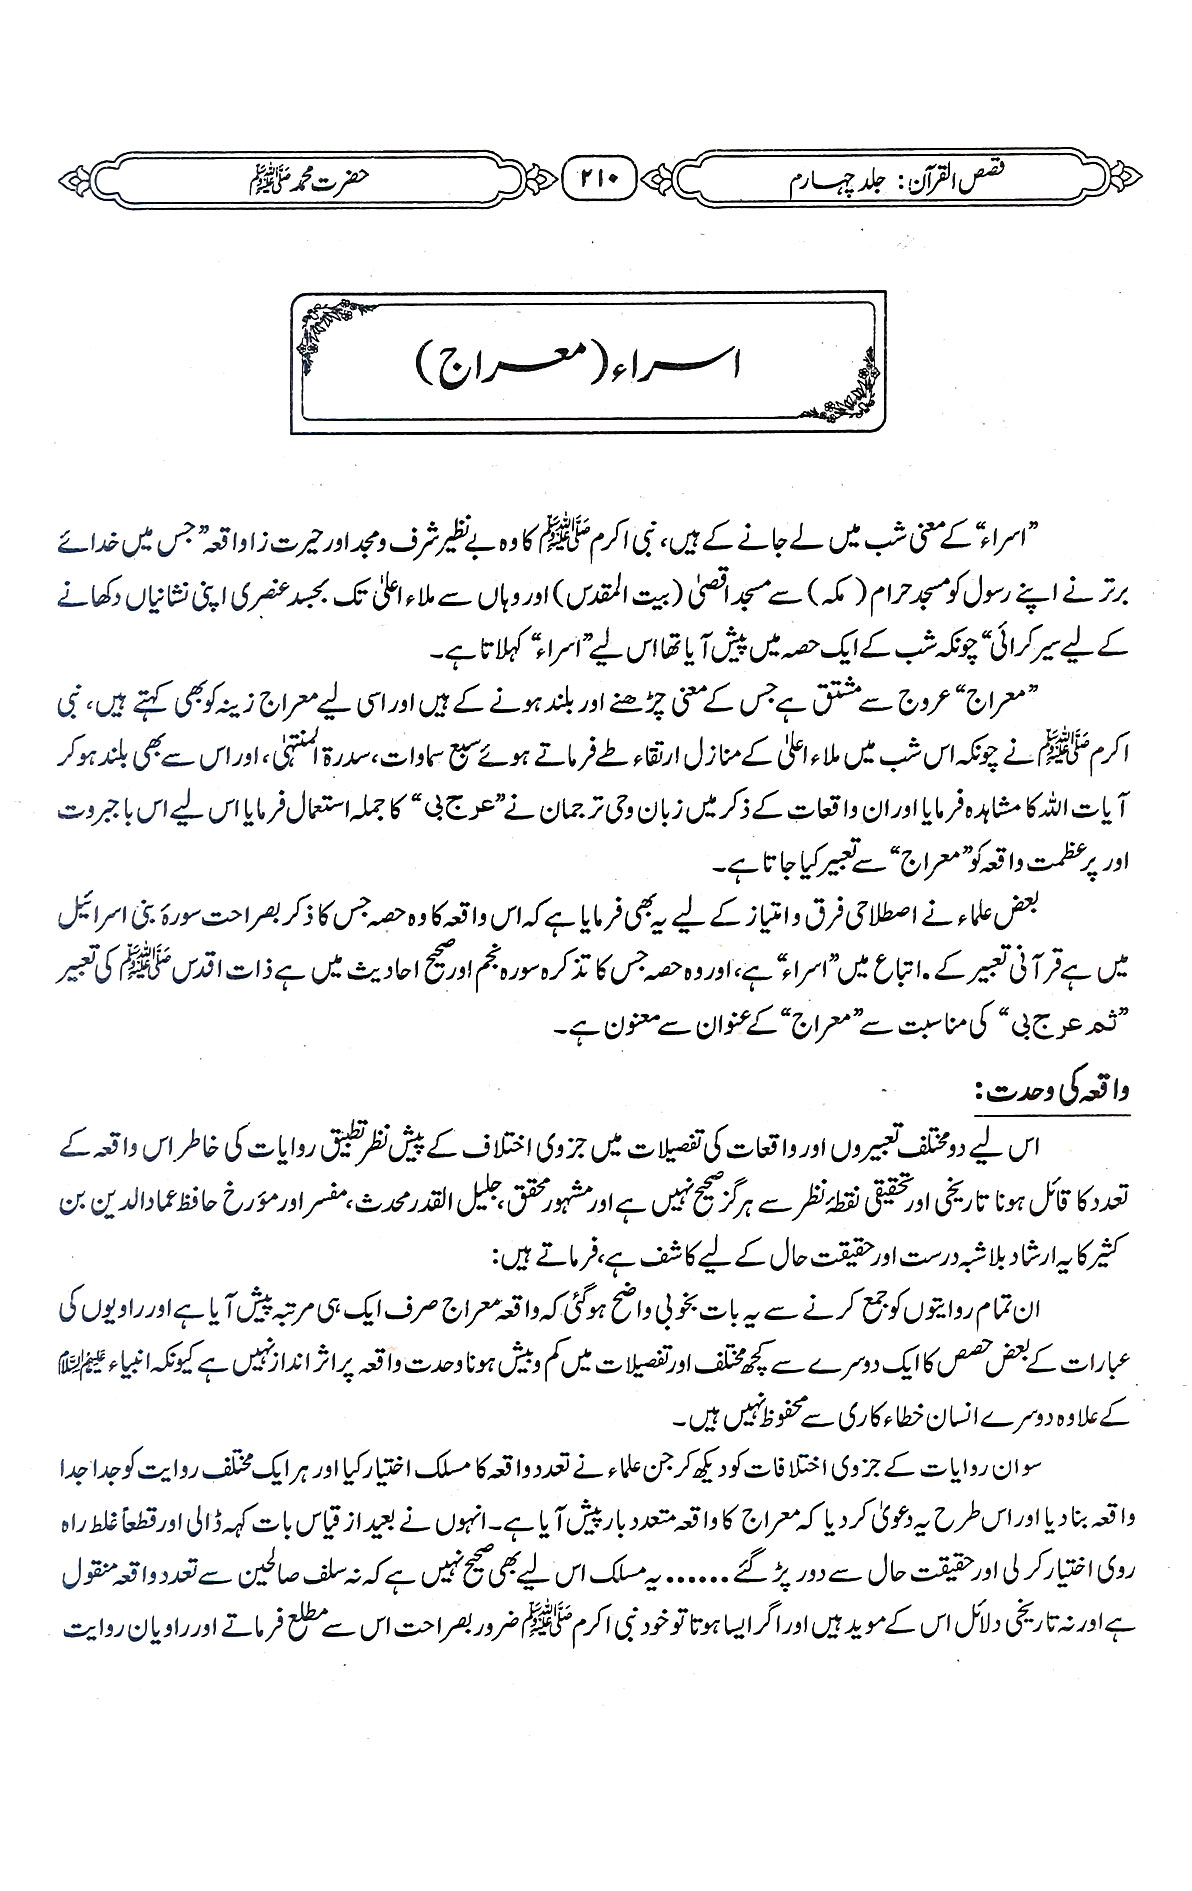 قصص القرآن: جلد چہارم
۲۱۰
حضرت محمد ﷺ
اسراء (معراج)
”اسراء“ کے معنی شب میں لے جانے کے ہیں، نبی اکرم ﷺ کا وہ بے نظیر شرف و مجد اور حیرت زا واقعہ ”جس میں خدائے
برتر نے اپنے رسول کو مسجد حرام (مکہ) سے مسجد اقصیٰ (بیت المقدس) اور وہاں سے ملاء اعلیٰ تک بجسد عنصری اپنی نشانیاں دکھانے
کے لیے سیر کرائی“ چونکہ شب کے ایک حصہ میں پیش آیا تھا اس لیے ”اسراء“ کہلاتا ہے۔
”معراج“ عروج سے مشتق ہے جس کے معنی چڑھنے اور بلند ہونے کے ہیں اور اسی لیے معراج زینہ کو بھی کہتے ہیں، نبی
اکرم ﷺ نے چونکہ اس شب میں ملاء اعلیٰ کے منازل ارتقاء طے فرماتے ہوئے سبع سماوات، سدرۃ المنتہیٰ، اور اس سے بھی بلند ہو کر
آیات اللہ کا مشاہدہ فرمایا اور ان واقعات کے ذکر میں زبان وحی ترجمان نے ”عرج بی“ کا جملہ استعمال فرمایا اس لیے اس باجبروت
اور پر عظمت واقعہ کو ”معراج“ سے تعبیر کیا جاتا ہے۔
بعض علماء نے اصطلاحی فرق و امتیاز کے لیے یہ بھی فرمایا ہے کہ اس واقعہ کا وہ حصہ جس کا ذکر بصراحت سورۂ بنی اسرائیل
میں ہے قرآنی تعبیر کے اتباع میں ”اسراء“ ہے، اور وہ حصہ جس کا تذکرہ سورہ نجم اور صحیح احادیث میں ہے ذات اقدس ﷺ کی تعبیر
”ثم عرج بی“ کی مناسبت سے ”معراج“ کے عنوان سے معنون ہے۔
واقعہ کی وحدت:
اس لیے دو مختلف تعبیروں اور واقعات کی تفصیلات میں جزوی اختلاف کے پیش نظر تطبیق روایات کی خاطر اس واقعہ کے
تعدد کا قائل ہونا تاریخی اور تحقیقی نقطۂ نظر سے ہرگز صحیح نہیں ہے اور مشہور محقق، جلیل القدر محدث، مفسر اور مؤرخ حافظ عماد الدین بن
کثیر کا یہ ارشاد بلا شبہ درست اور حقیقت حال کے لیے کاشف ہے، فرماتے ہیں:
ان تمام روایتوں کو جمع کرنے سے یہ بات بخوبی واضح ہو گئی کہ واقعہ معراج صرف ایک ہی مرتبہ پیش آیا ہے اور راویوں کی
عبارات کے بعض حصص کا ایک دوسرے سے کچھ مختلف اور تفصیلات میں کم و بیش ہونا وحدت واقعہ پر اثر انداز نہیں ہے کیونکہ انبیاء علیہم السلام
کے علاوہ دوسرے انسان خطاء کاری سے محفوظ نہیں ہیں۔
سو ان روایات کے جزوی اختلافات کو دیکھ کر جن علماء نے تعدد واقعہ کا مسلک اختیار کیا اور ہر ایک مختلف روایت کو جدا جدا
واقعہ بنا دیا اور اس طرح یہ دعویٰ کر دیا کہ معراج کا واقعہ متعدد بار پیش آیا ہے۔ انہوں نے بعید از قیاس بات کہہ ڈالی اور قطعاً غلط راہ
روی اختیار کر لی اور حقیقت حال سے دور پڑ گئے ...... یہ مسلک اس لیے بھی صحیح نہیں ہے کہ نہ سلف صالحین سے تعدد واقعہ منقول
ہے اور نہ تاریخی دلائل اس کے موید ہیں اور اگر ایسا ہوتا تو خود نبی اکرم ﷺ ضرور بصراحت اس سے مطلع فرماتے اور راویان روایت